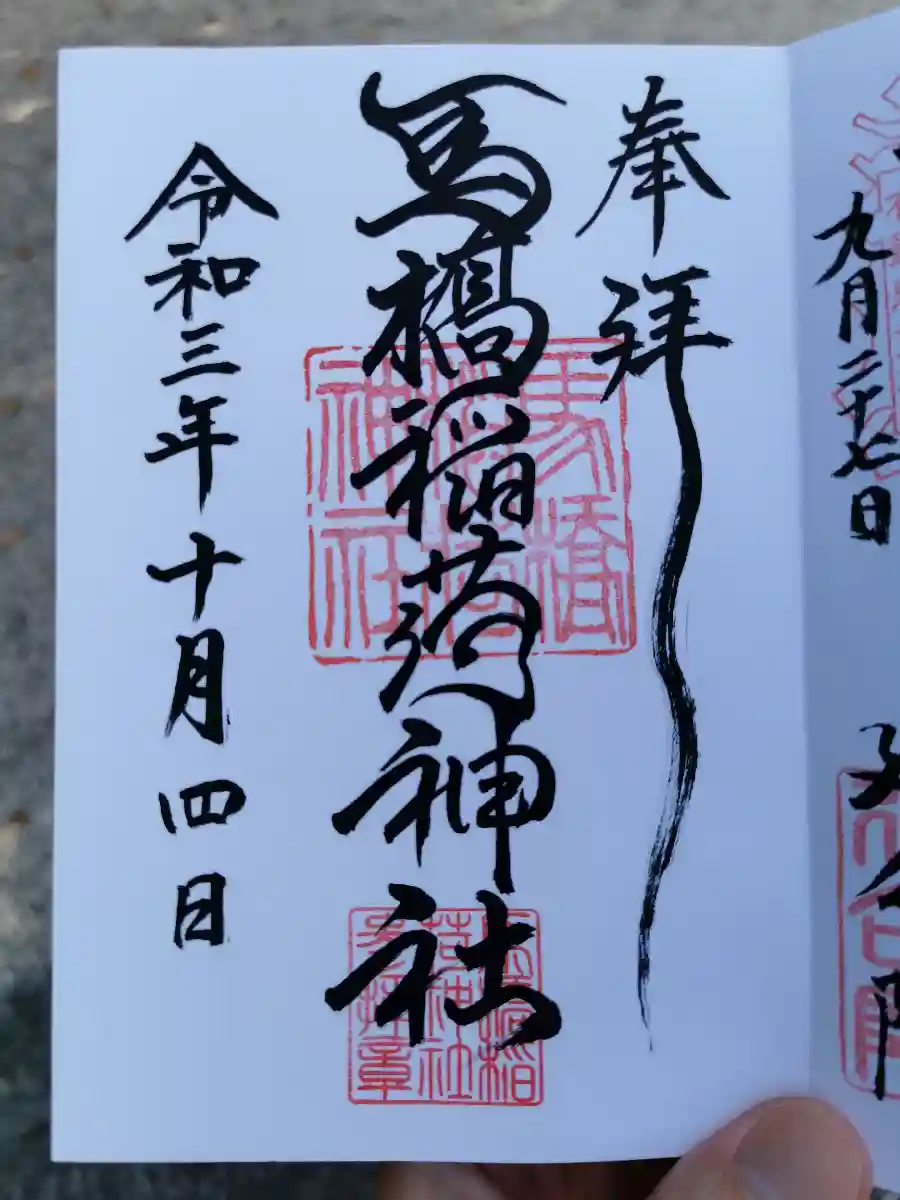 九月二十七日
奉拝
馬橋稲荷神社
馬橋
稲荷
神社
馬橋稲
荷神社
参拝章
令和三年十月四日